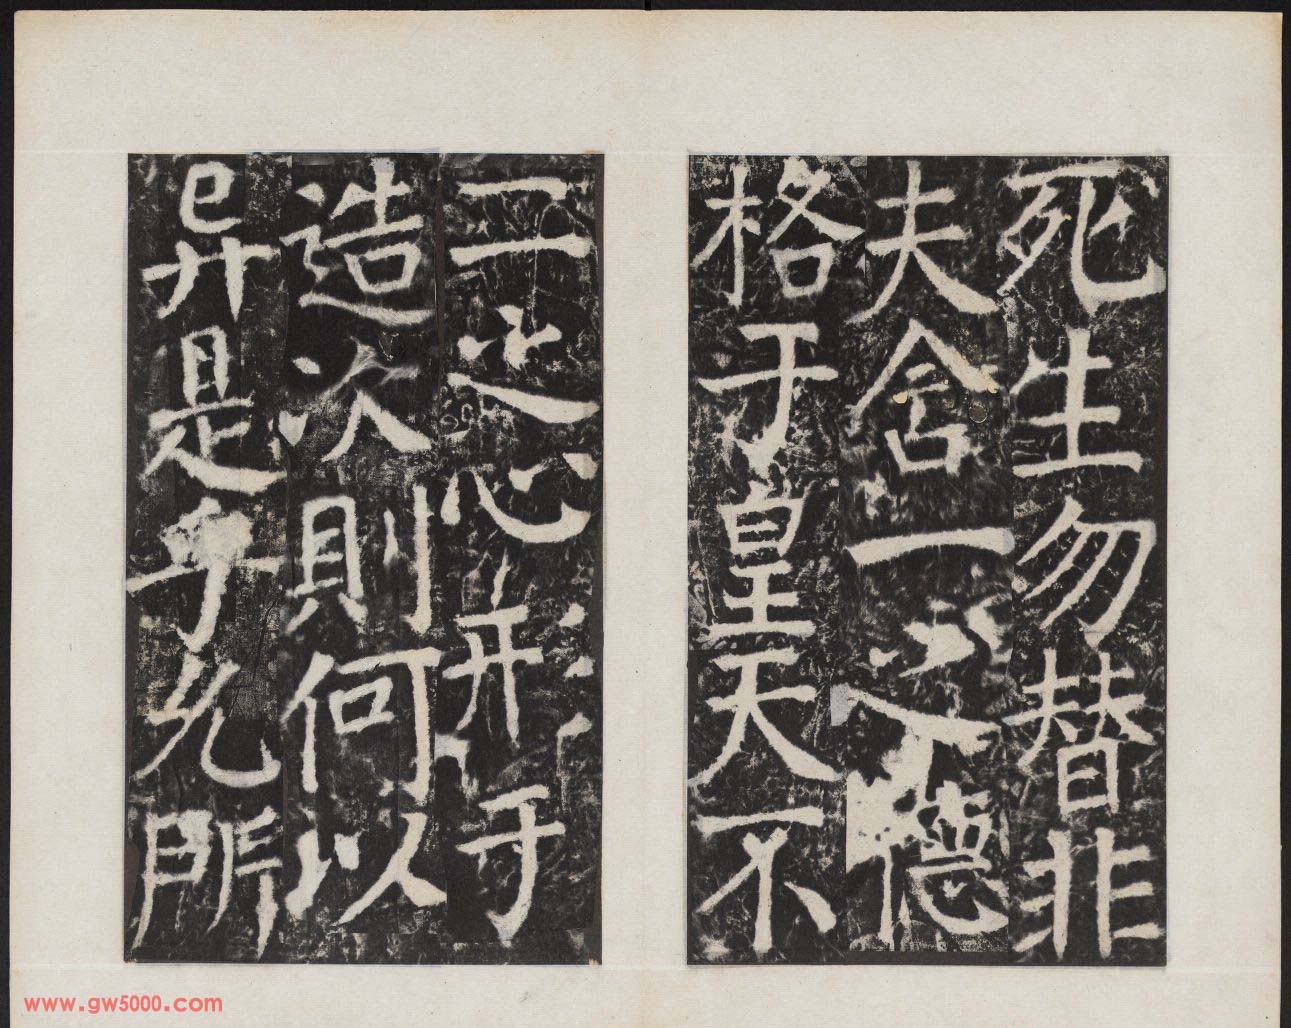 死生勿替非
夫含一之德
格于皇天不
二之心形于
造次則何以
异是乎允所
www.gw5000.com